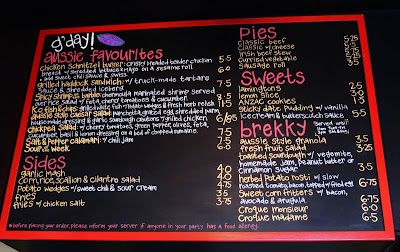 g'day!
aussie favourites
chicken schnitzel burger crispy breaded tender chicken
breast w/ shredded lettuce & mayo on a sesame roll
add sweet chili sauce & swiss
grilled haddock sandwich w/ truck-made tartare
sauce & shredded iceberg
spicy shrimp & mango chermoula marinated shrimp served
over rice salad w/ feta, cherry tomatoes & cucumber
fish & chips grilled hake fish w/ potato wedges & fresh herb relish
aussie style caesar salad pancetta, grated egg, shredded parm,
house made dressing & garlic sourdough croutons w/ grilled chicken
chickpea salad w/ cherry tomatoes, green pepper, olives, feta,
cucumber, basil & lemon dressing on a bed of chopped romaine
salt & pepper calamari w/ chili jam
soup o' week
5.5
6.0
7.5
8.5
7.5
6.75
7.5
5
Sides
garlic mash
corn, rice, scallion & cilantro salad
potato wedges w/ sweet chili & sour cream
fries
fries w/ chicken salt
4
4
3.5
Pies
classic beef
classic w/ cheese
irish beef stew
curried vegetable
sausage roll
5.75
Sweets
lamingtons
jam slice
ANZAC cookies
sticky date pudding w/ vanilla
icecream & butterscotch sauce
2.5
5.5
brekky
aussie style granola
fresh fruit salad
toasted sourdough w/ vegemite,
homemade jam, peanut butter or
cinnamon sugar
herbed potato rosti w/ slow
roasted tomato, bacon, topped w/ fried egg
sweet corn fritters w/ bacon,
avocado & arugula
croque monsieur
croque madame
3.5
3.5
6.75
6.75
6.0
6.5
* before placing your order, please inform your server if anyone in your party has a food allergy.